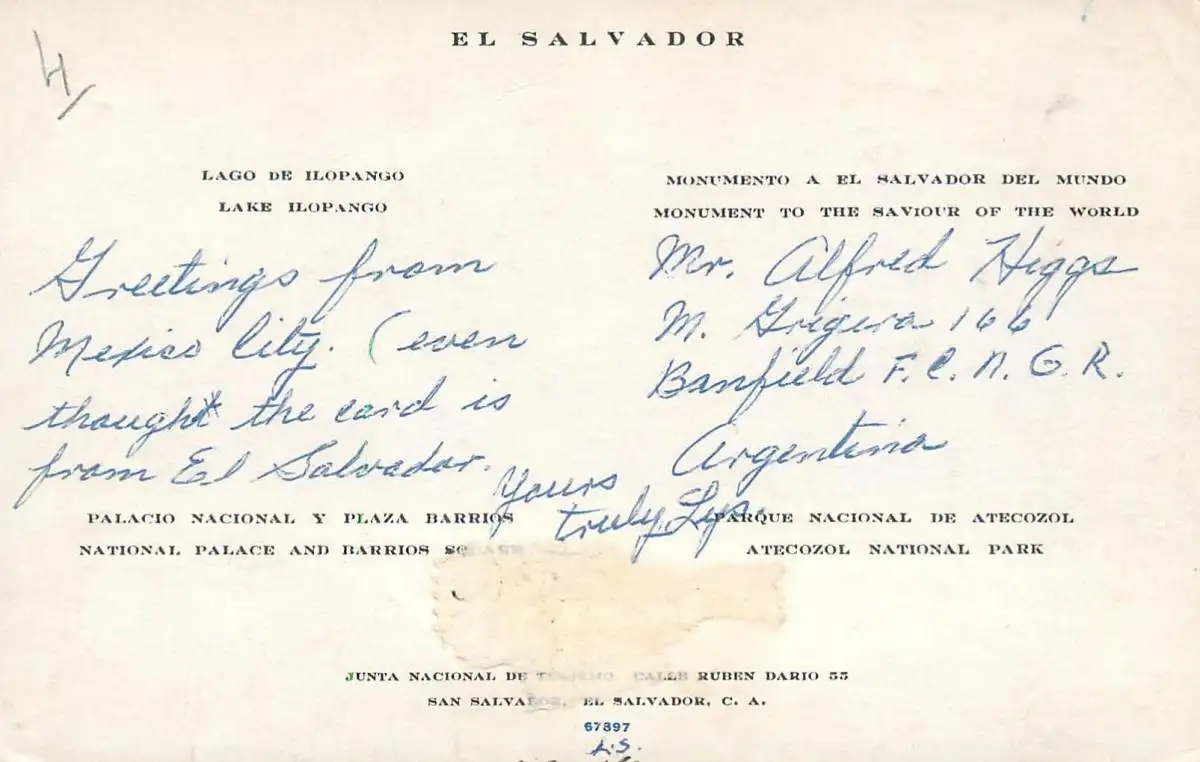 EL SALVADOR
H
LAGO DE ILOPANGO
LAKE ILOPANGO
MONUMENTO A EL SALVADOR DEL MUNDO
MONUMENT TO THE SAVIOUR OF THE WORLD
Greetings from
Mexico City. (even
thought the card is
from El Salvador.
Yours
truly, Lys.
Mr. Alfred Higgs
M. Grigera 166
Banfield F.C.N.G.R.
Argentina
PALACIO NACIONAL Y PLAZA BARRIOS
NATIONAL PALACE AND BARRIOS SQUARE
PARQUE NACIONAL DE ATECOZOL
ATECOZOL NATIONAL PARK
JUNTA NACIONAL DE TURISMO CALLE RUBEN DARIO 55
SAN SALVADOR, EL SALVADOR, C. A.
67897
L.S.